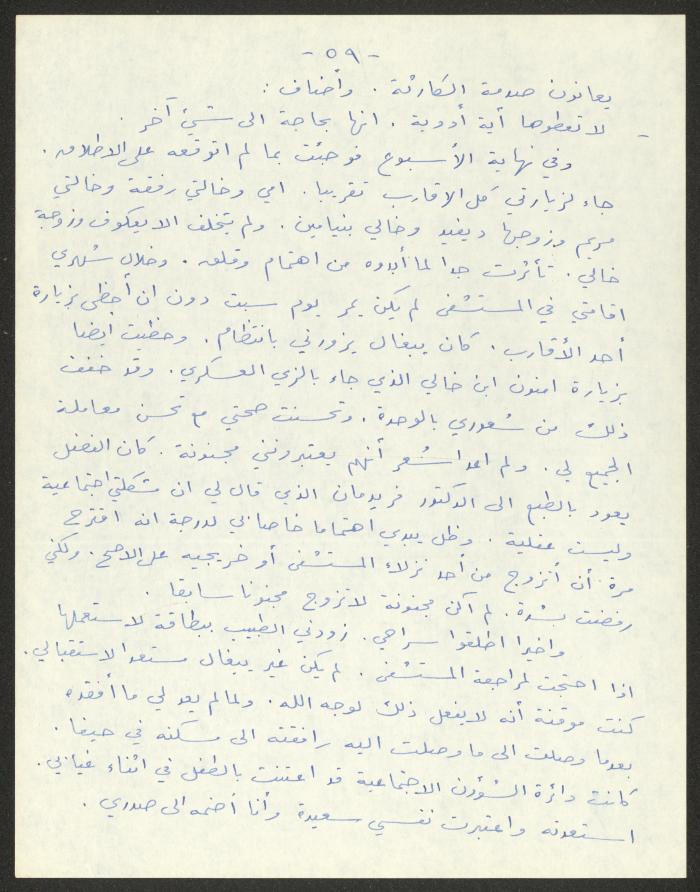 - ٥٩ -
يعانون صدمة الكارثة . وأضاف :
- لا تعطوها أية أدوية . انها بحاجة الى شيئ آخر .
وفي نهاية الأسبوع فوجئت بما لم اتوقعه على الاطلاق .
جاء لزيارتي كل الاقارب تقريبا . امي وخالتي رفقة وخالتي
مريم وزوجها ديفيد وخالي بنيامين . ولم يتخلف الا يعكوف وزوجة
خالي . تأثرت جدا لما أبدوه من اهتمام وقلق . وخلال شهري
اقامتي في المستشفى لم يكن يمر يوم سبت دون ان أحظى بزيارة
أحد الأقارب . كان يبغال يزورني بانتظام . وحظيت ايضا
بزيارة امنون ابن خالي الذي جاء بالزي العسكري . وقد خفف
ذلك من شعوري بالوحدة . وتحسنت صحتي مع تحسن معاملة
الجميع لي . ولم اعد اشعر أنهم يعتبرونني مجنونة . كان الفضل
يعود بالطبع الى الدكتور فريدمان الذي قال لي ان مشكلتي اجتماعية
وليست عقلية . وظل يبدي اهتماما خاصا بي لدرجة انه اقترح
مرة أن أتزوج من أحد نزلاء المستشفى أو خريجيه على الاصح . ولكني
رفضت بشدة . لم أكن مجنونة لاتزوج مجنونا سابقا .
واخيرا اطلقوا سراحي . زودني الطبيب ببطاقة لاستعملها
اذا احتجت لمراجعة المستشفى . لم يكن غير يبغال مستعدا لاستقبالي .
كنت موقنة أنه لا يفعل ذلك لوجه الله . ولما لم يعد لي ما أفقده
بعدما وصلت الى ما وصلت اليه رافقته الى مسكنه في حيفا .
كانت دائرة الشؤون الاجتماعية قد اعتنت بالطفل في اثناء غيابي .
استعدته واعتبرت نفسي سعيدة وأنا أضمه الى صدري .